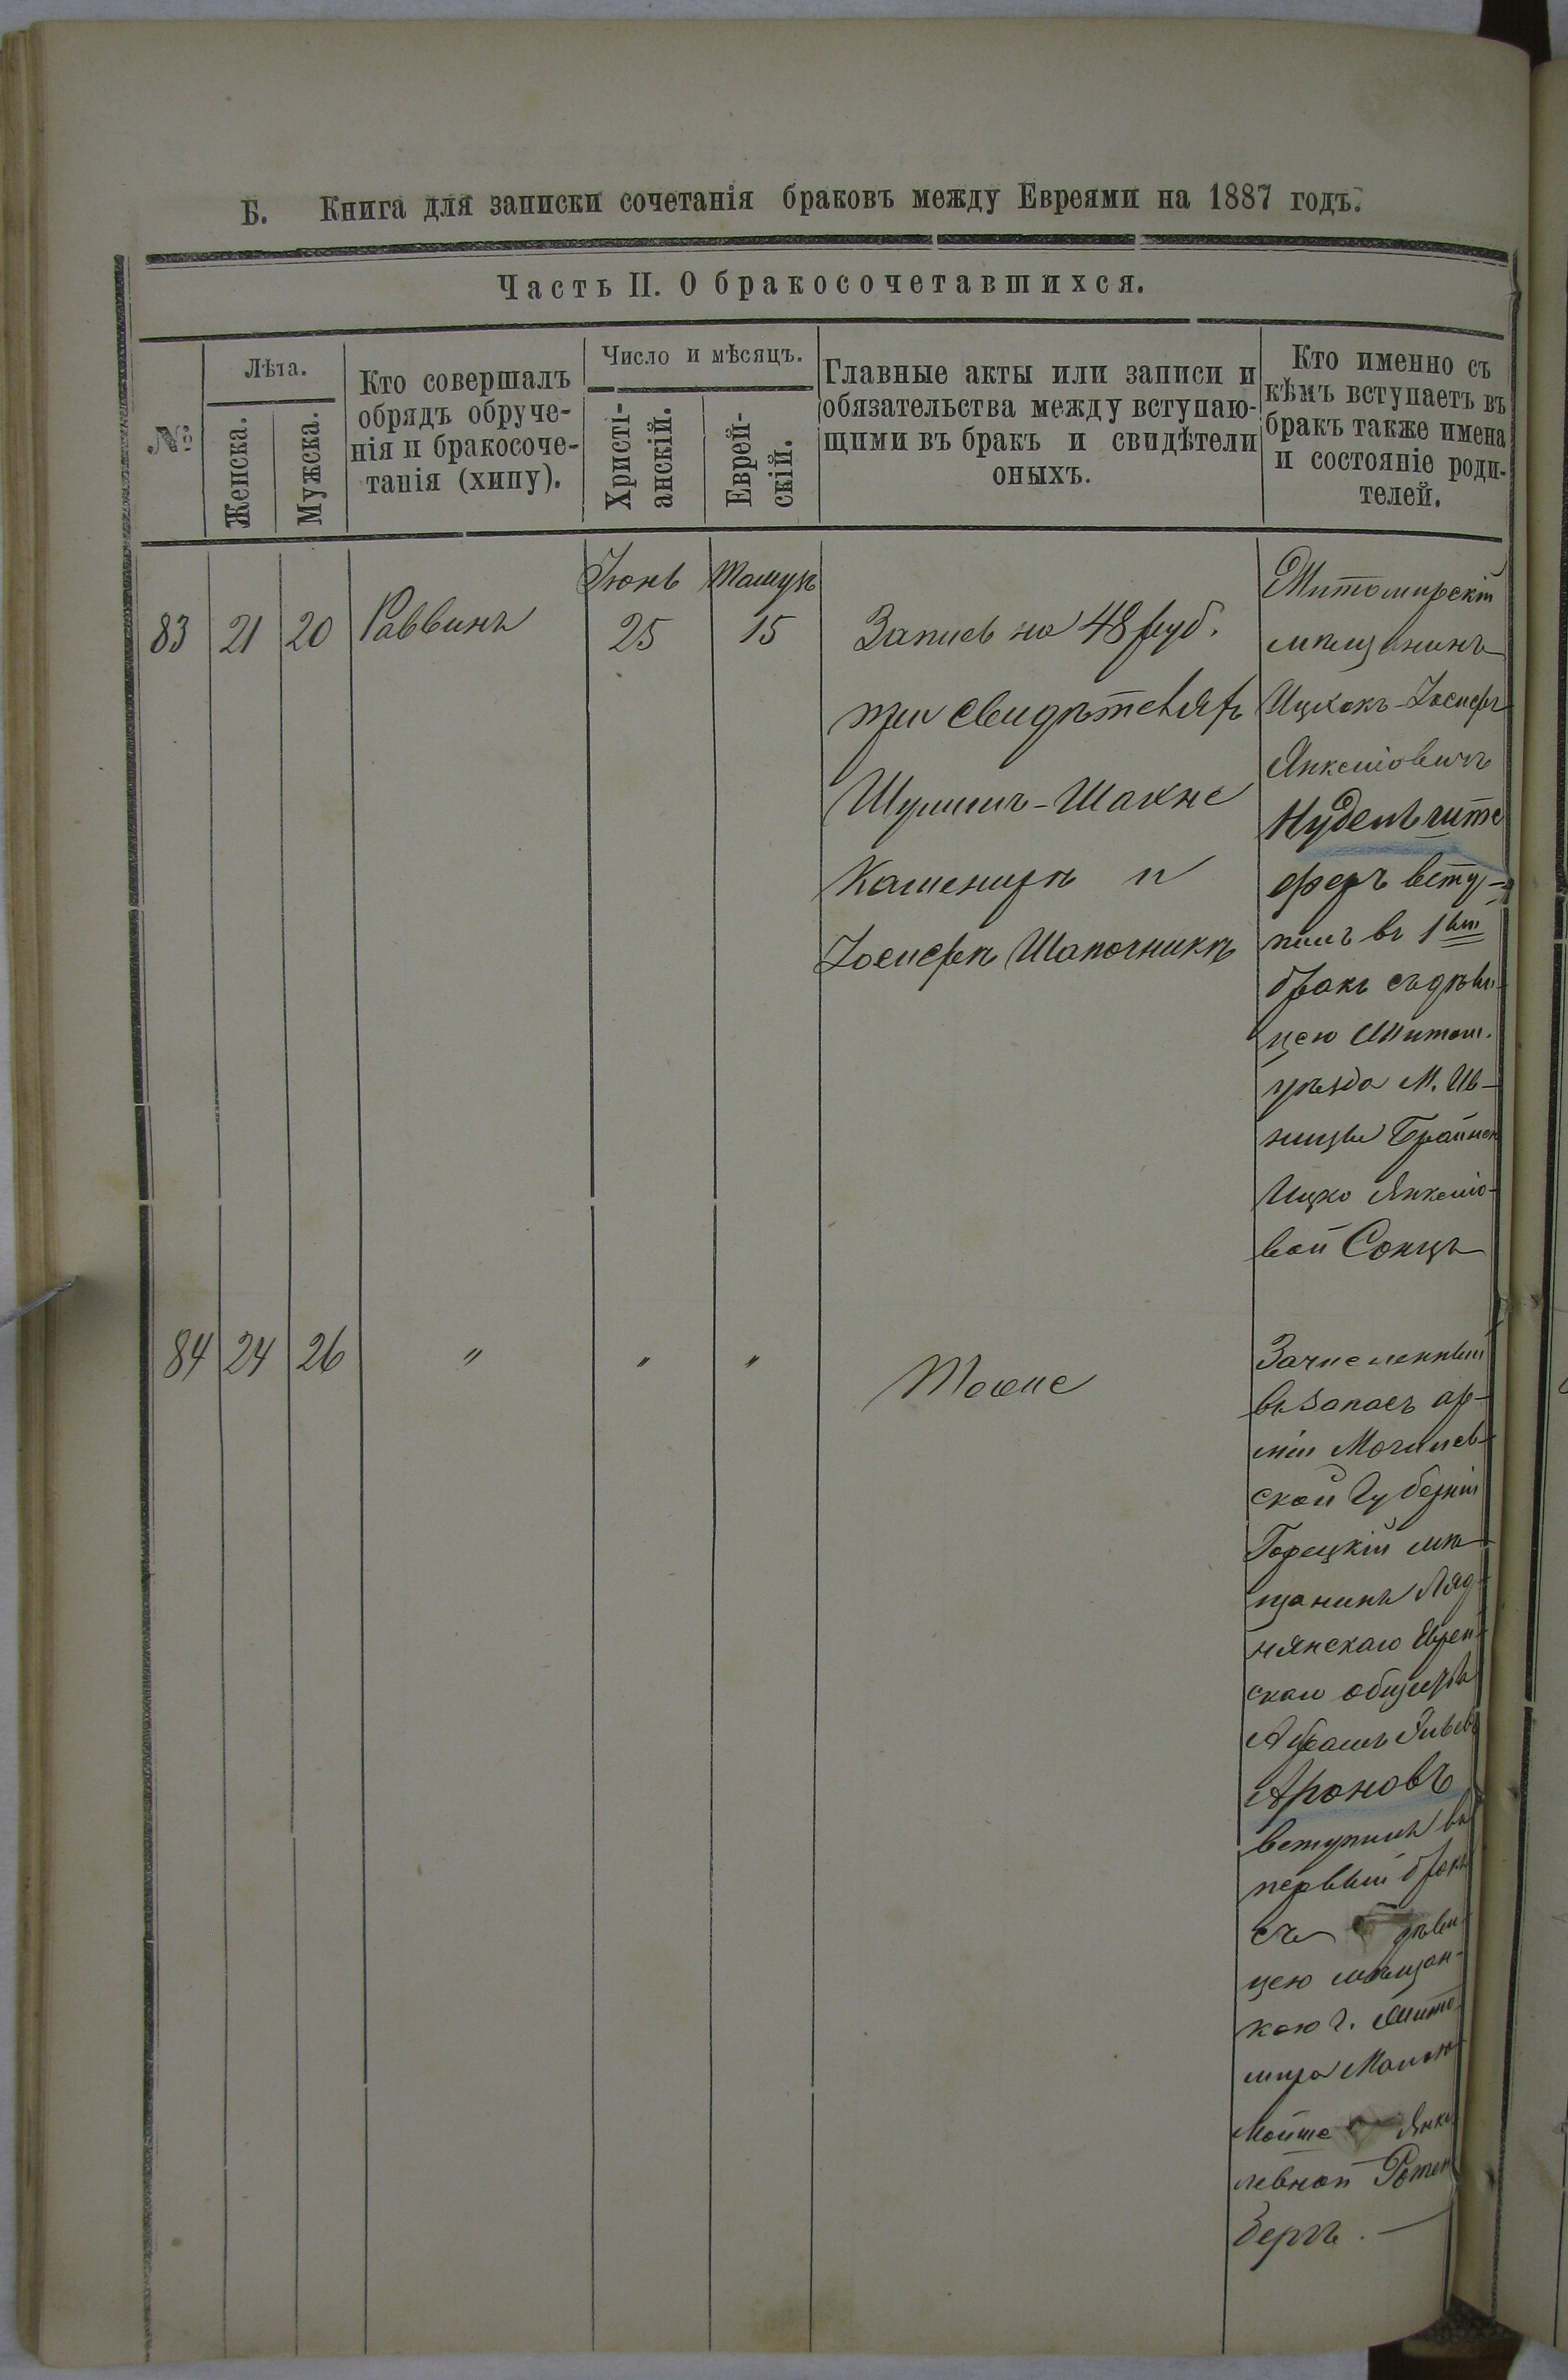 Б. Книга для записки сочетанія браковъ между Евреями на 1887 годъ.
Часть II. О бракосочетавшихся.
№
Лѣта.
Женска.
Мужска.
Кто совершалъ
обрядъ обруче-
нія и бракосоче-
танія (хипу).
Число и мѣсяцъ.
Христі-
анскій.
Еврей-
скій.
Главные акты или записи и
обязательства между вступаю-
щими въ бракъ и свидѣтели
оныхъ.
Кто именно съ
кѣмъ вступаетъ въ
бракъ также имена
и состояніе роди-
телей.
Іюнь Тамузъ
83 21 20 Раввинъ 25 15
Запись на 48 руб.
при свидѣтеляхъ
Шулимъ-Шахне
Камениръ и
Іосифъ Шапочникъ
Житомирскій
мѣщанинъ
Ицхокъ-Іосифъ
Янкеліовичъ
Нудельгите
феръ всту-
пилъ въ 1ый
бракъ съ дѣви-
цею Житом.
уѣзда М. Ив-
ницы Брайнею
Ицко Янкеліо-
вой Сонцъ
84 24 26 " " "
Тоже
Зачисленный
въ запасъ ар-
міи Могилев-
ской Губерніи
Горецкій мѣ-
щанинъ Ляд-
нянскаго Еврей-
скаго общества
Абрамъ
Ароновъ
вступилъ въ
первый бракъ
съ дѣви-
цею мѣщан-
кою г. Жито-
мира
Янке
левной Ротен
бергъ. —